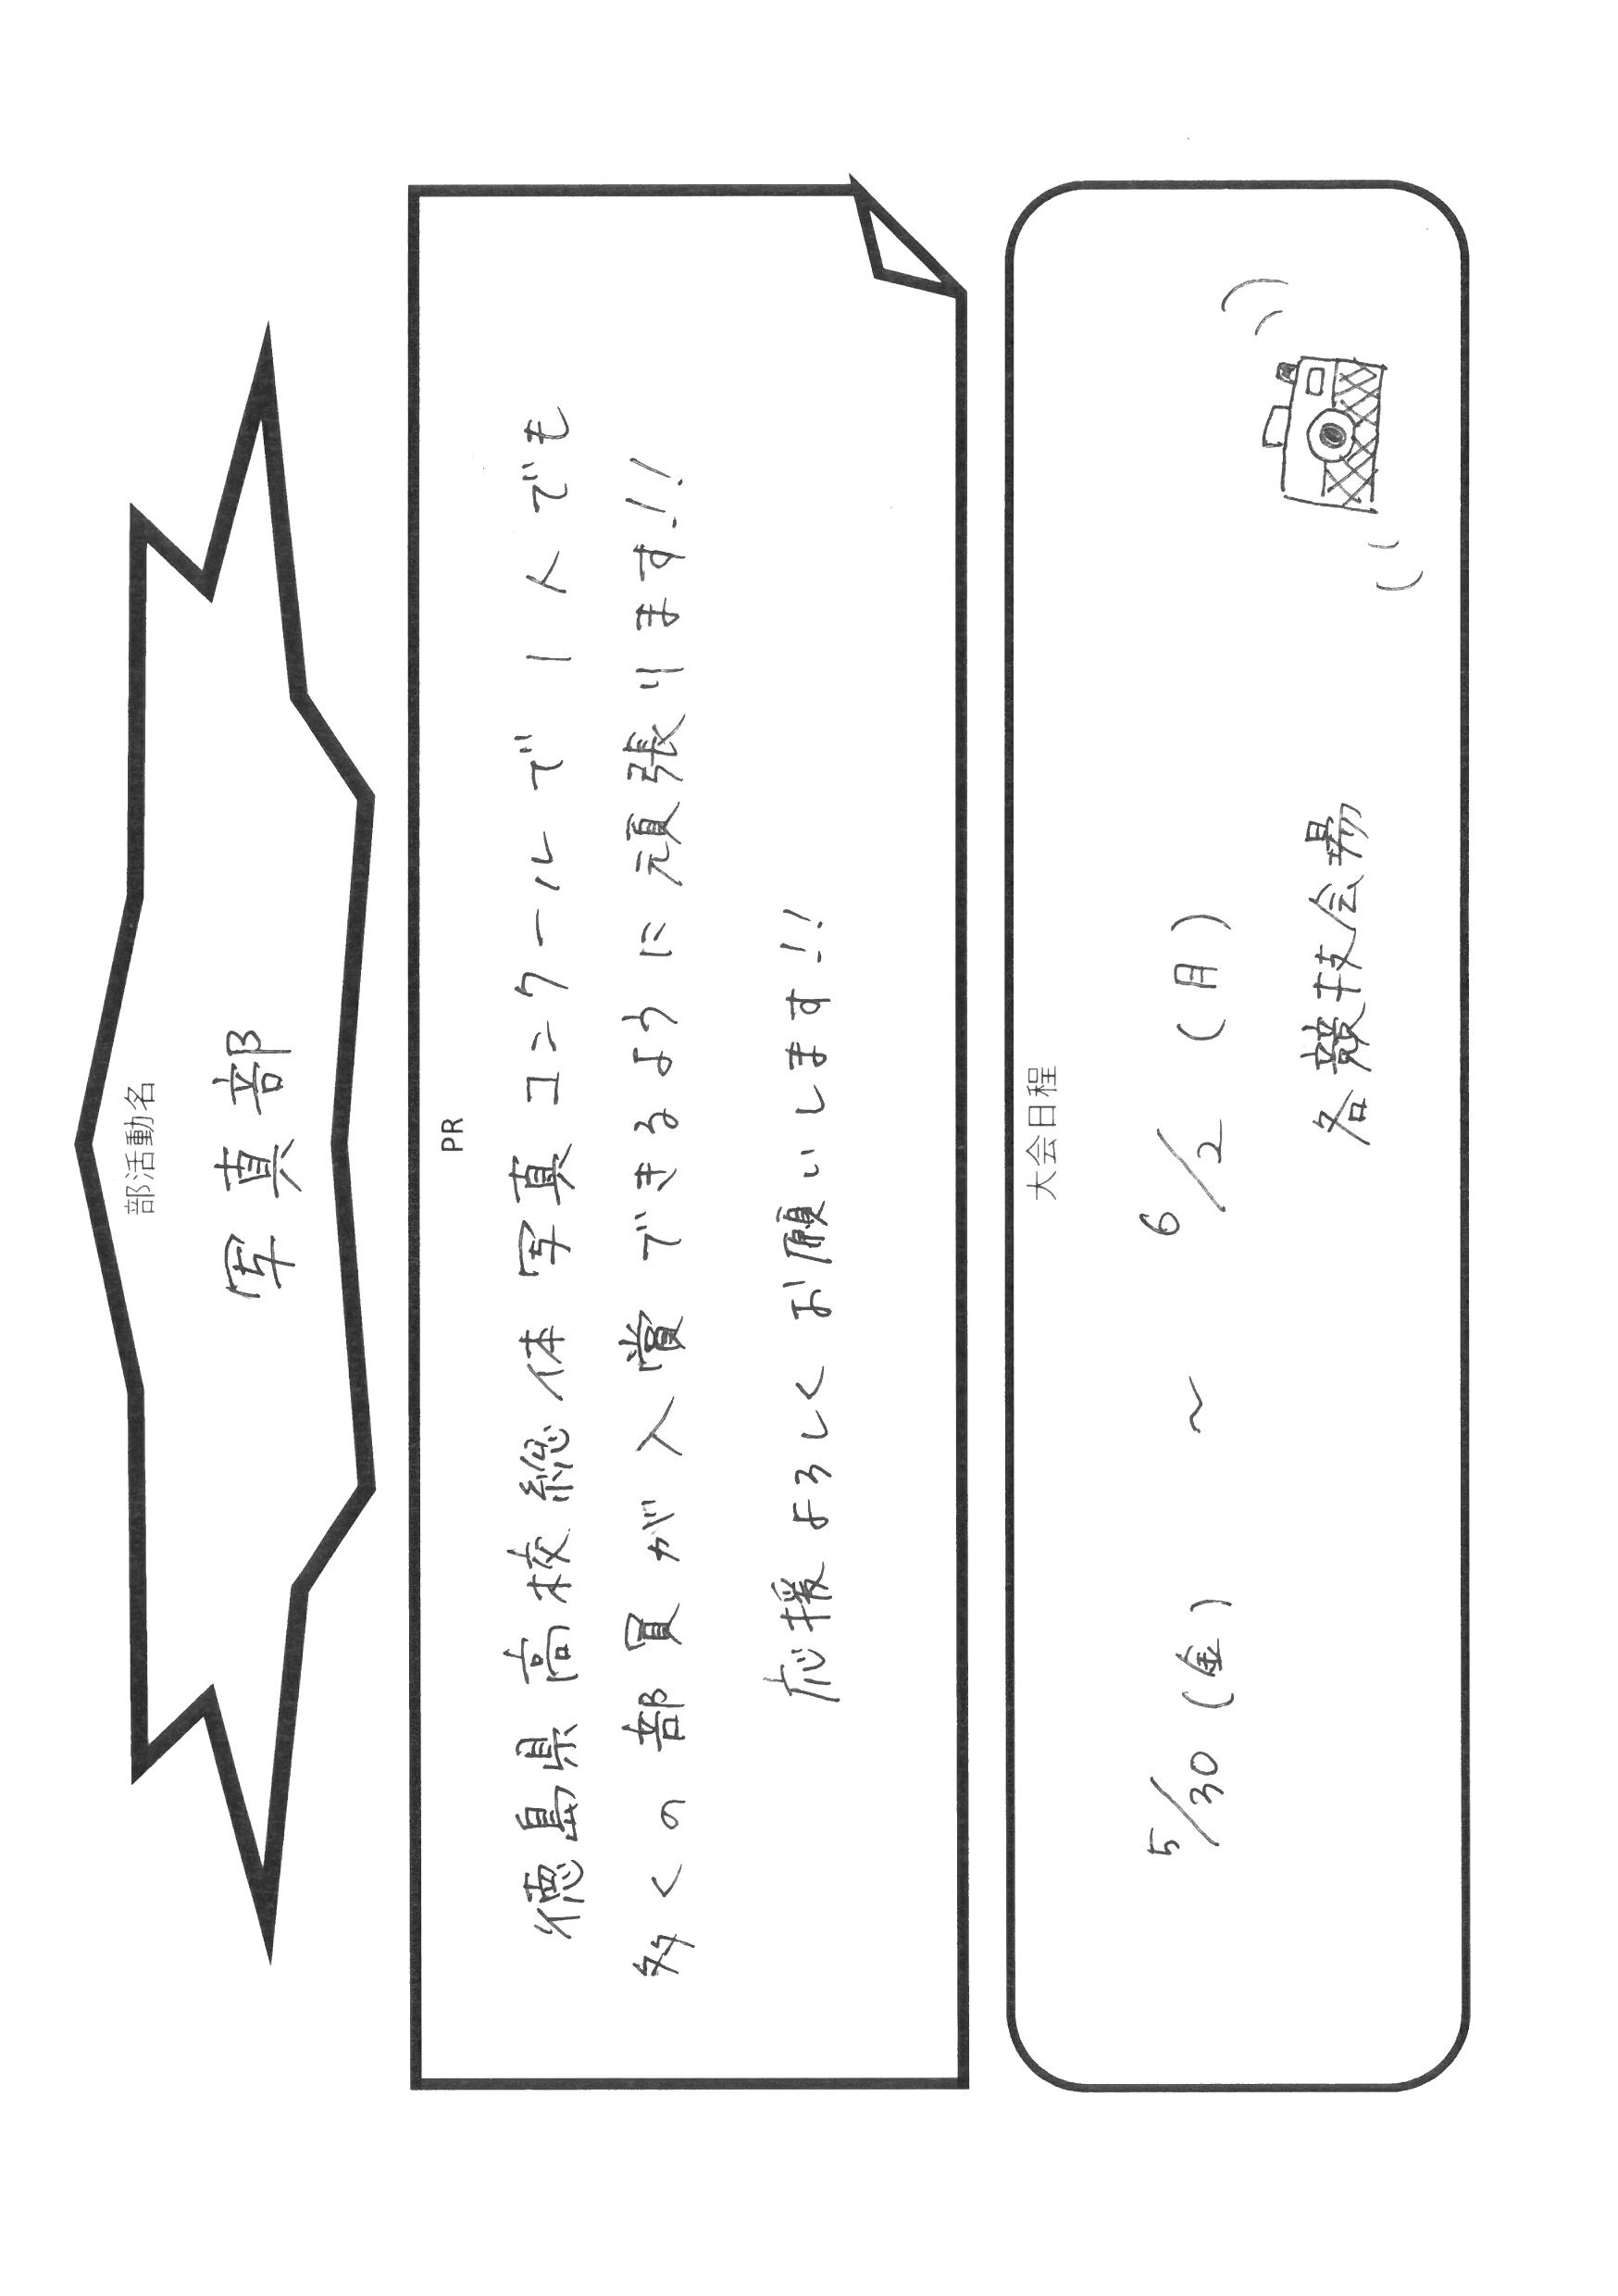 部活動名
写真部
PR
徳島県高校総体 写真コンクールで1人でも
多くの部員が入賞できるように頑張ります!!
応援よろしくお願いします!!
大会日程
5/30(金) ~ 6/2(月)
各競技会場